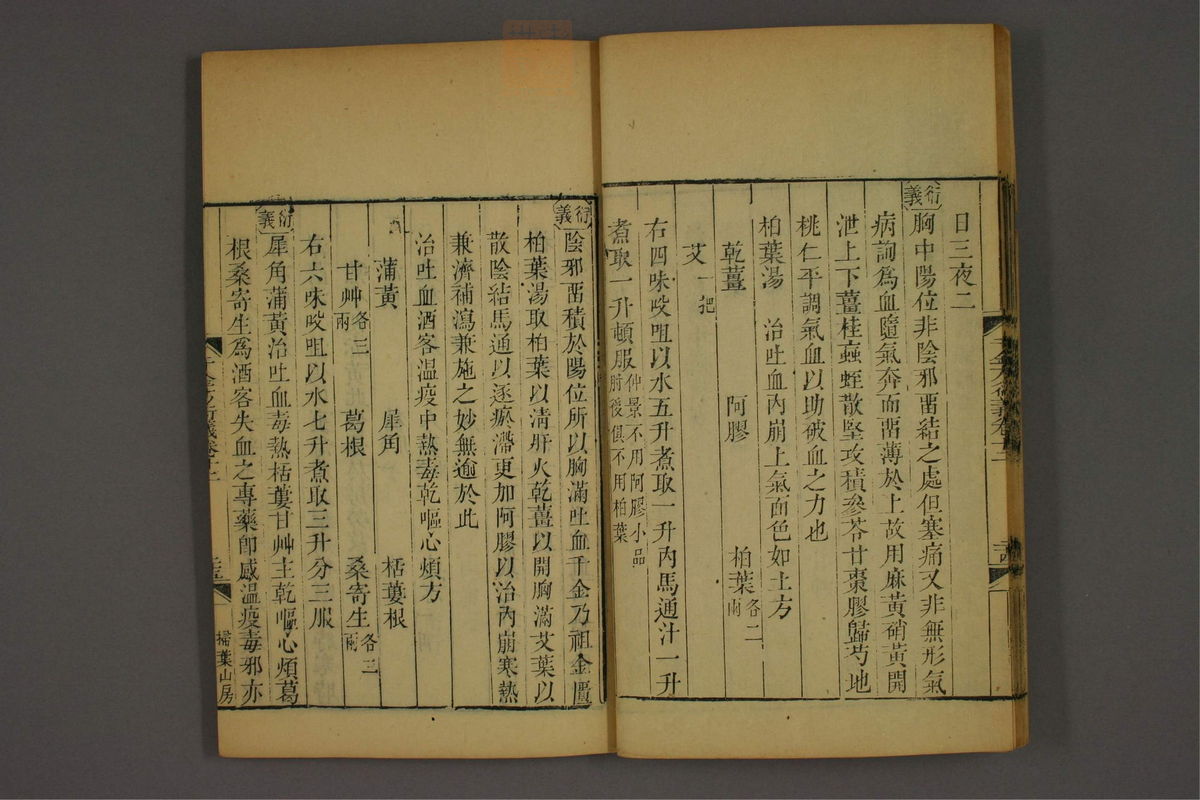 日三夜二
衍義
胸中陽位非陰邪畱結之處但塞痛又非無形氣
病詢爲血隨氣奔而畱薄於上故用麻黃硝黃開
泄上下薑桂䗪蛭散堅攻積參苓甘棗膠歸芍地
桃仁平調氣血以助破血之力也
柏葉湯　治吐血內崩上氣面色如土方
乾薑　阿膠　柏葉各二兩
艾一把
右四味㕮咀以水五升煮取一升內馬通汁一升
煮取一升頓服仲景不用阿膠小品肘後俱不用柏葉
衍義
陰邪畱積於陽位所以胸滿吐血千金乃祖金匱
柏葉湯取柏葉以淸肝火乾薑以開胸滿艾葉以
散陰結馬通以逐瘀滯更加阿膠以治內崩寒熱
兼濟補瀉兼施之妙無逾於此
治吐血酒客溫疫中熱毒乾嘔心煩方
蒲黃　犀角　栝蔞根
甘艸各三兩　葛根　桑寄生各三兩
右六味㕮咀以水七升煮取三升分三服
衍義
犀角蒲黃治吐血毒熱栝蔞甘艸主乾嘔心煩葛
根桑寄生爲酒客失血之專藥卽感溫疫毒邪亦
掃葉山房